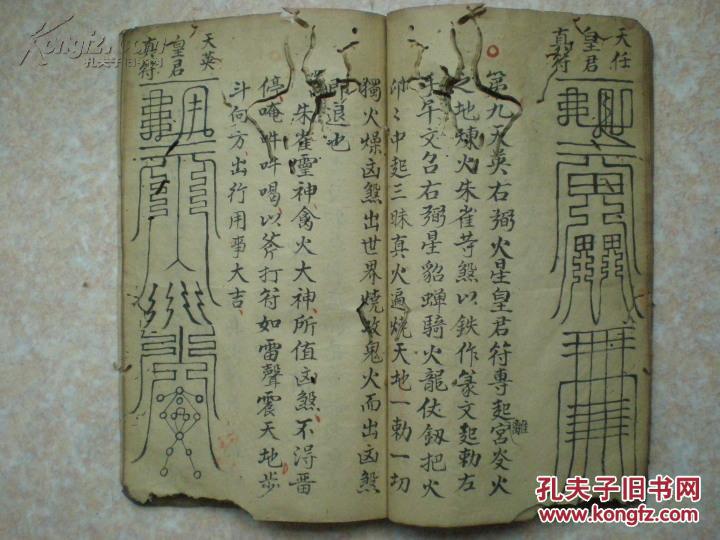 天任
皇君
真符
第九天英右弼火星皇君符專起宮炎火
離
之地煉火朱雀等煞以鉄作篆文起勅左
手年文召右弼星貂蟬騎火龍仗釼把火
冲〻中起三昧真火遍燒天地一勅一切
獨火燥凶煞出世界燒攻鬼火而出凶煞
即退也
朱雀靈神禽火大神所值凶煞不得畱
停唵吽吽喝以斧打符如雷聲震天地步
斗向方出行用事大吉
天英
皇君
真符
Kongfz.com
孔夫子旧书网
孔夫子旧书网
KONGFZ.COM